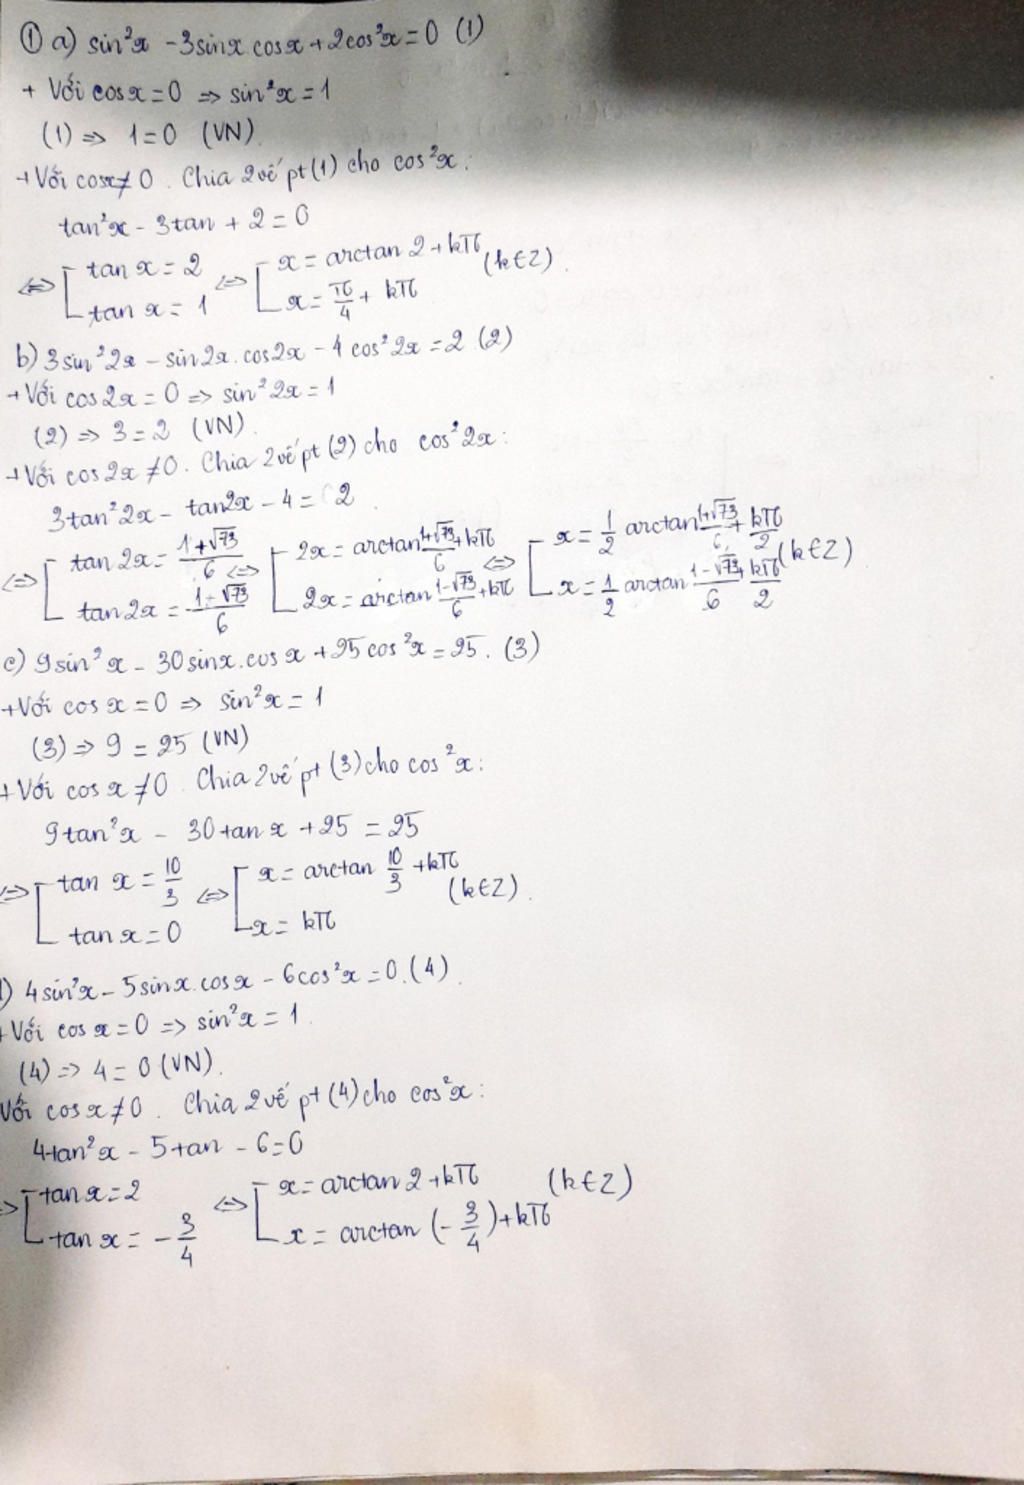 ① a) sin²x - 3sinx.cosx + 2cos²x = 0 (1)
+ Với cosx = 0 ⇒ sin²x = 1
(1) ⇒ 1 = 0 (VN)
+ Với cosx ≠ 0. Chia 2 vế pt (1) cho cos²x:
tan²x - 3tan + 2 = 0
⇔ [ tan x = 2 ⇔ [ x = arctan 2 + kπ (k∈Z).
tan x = 1 x = π/4 + kπ
b) 3sin²2x - sin2x.cos2x - 4cos²2x = 2 (2)
+ Với cos2x = 0 ⇒ sin²2x = 1
(2) ⇒ 3 = 2 (VN).
+ Với cos2x ≠ 0. Chia 2 vế pt (2) cho cos²2x:
3tan²2x - tan2x - 4 = 2
⇔ [ tan 2x = (1+√73)/6 ⇔ [ 2x = arctan (1+√73)/6 + kπ ⇔ [ x = 1/2 arctan (1+√73)/6 + kπ/2 (k∈Z)
tan 2x = (1-√73)/6 2x = arctan (1-√73)/6 + kπ x = 1/2 arctan (1-√73)/6 + kπ/2
c) 9sin²x - 30sinx.cosx + 25cos²x = 25. (3)
+ Với cosx = 0 ⇒ sin²x = 1
(3) ⇒ 9 = 25 (VN)
+ Với cosx ≠ 0. Chia 2 vế pt (3) cho cos²x:
9tan²x - 30tanx + 25 = 25
⇔ [ tan x = 10/3 ⇔ [ x = arctan 10/3 + kπ (k∈Z).
tan x = 0 x = kπ
) 4sin²x - 5sinx.cosx - 6cos²x = 0. (4)
+ Với cosx = 0 ⇒ sin²x = 1.
(4) ⇒ 4 = 0 (VN).
Với cosx ≠ 0. Chia 2 vế pt (4) cho cos²x:
4tan²x - 5tan - 6 = 0
⇒ [ tan x = 2 ⇔ [ x = arctan 2 + kπ (k∈Z)
tan x = -3/4 x = arctan (-3/4) + kπ